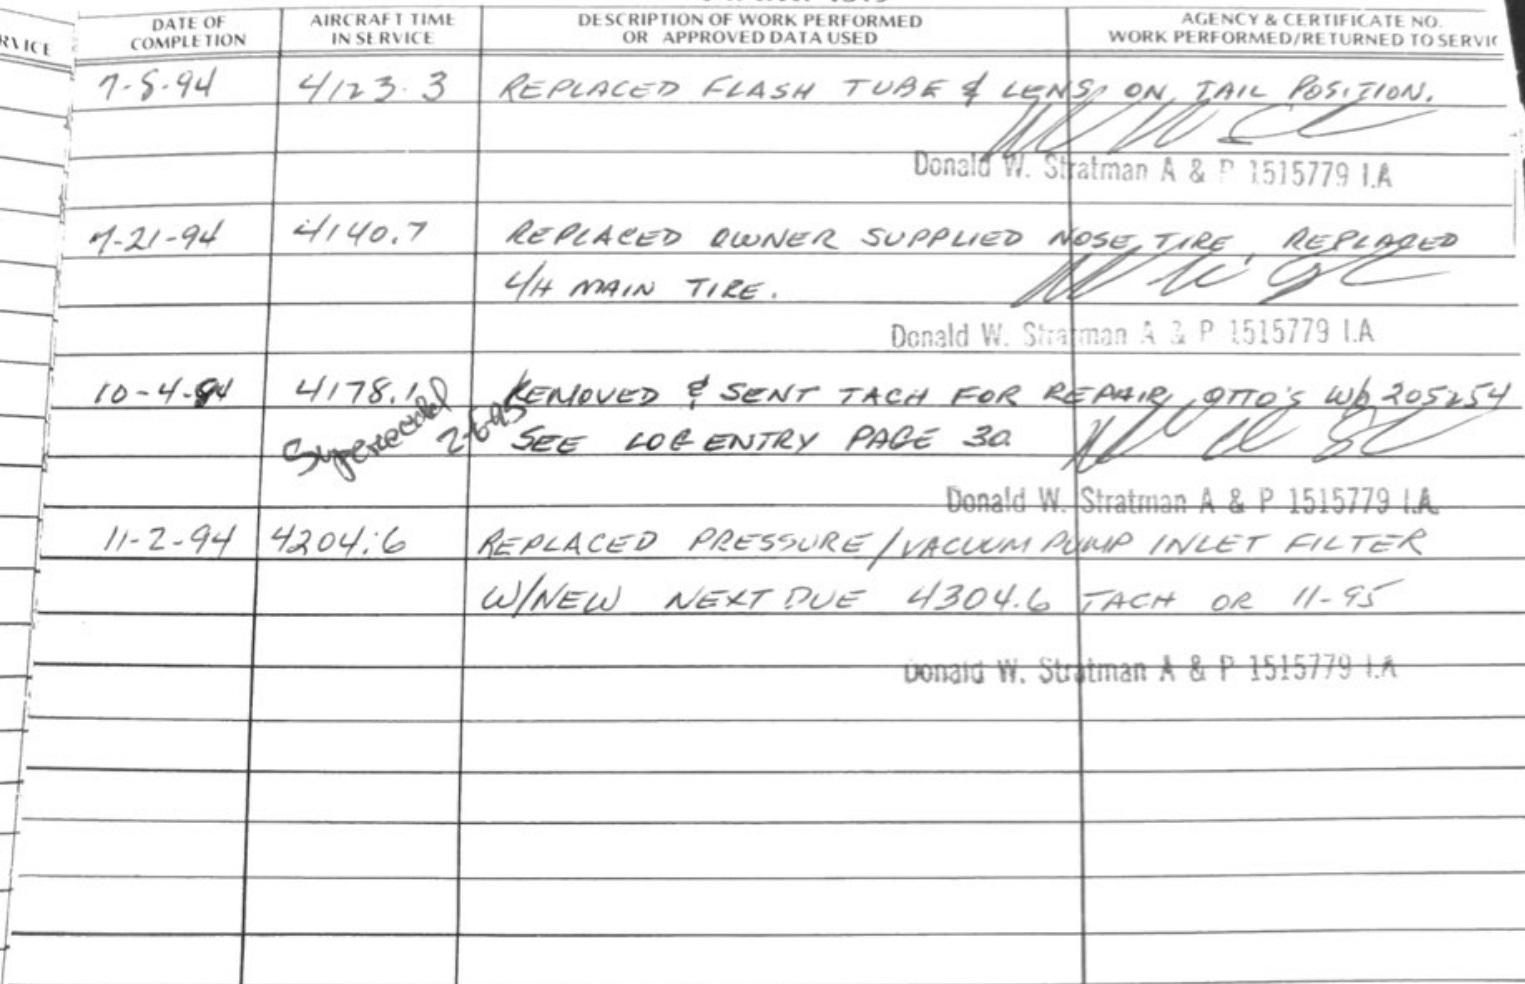 RVICE
DATE OF COMPLETION
AIRCRAFT TIME IN SERVICE
DESCRIPTION OF WORK PERFORMED OR APPROVED DATA USED
AGENCY & CERTIFICATE NO. WORK PERFORMED/RETURNED TO SERVIC
7-5-94 4123.3 REPLACED FLASH TUBE & LENS ON TAIL POSITION.
Donald W. Stratman A & P 1515779 I.A
7-21-94 4140.7 REPLACED OWNER SUPPLIED NOSE TIRE, REPLACED
L/H MAIN TIRE.
Donald W. Stratman A & P 1515779 I.A
10-4-94 4178.1 REMOVED & SENT TACH FOR REPAIR, OTTO'S WO 205254
Superceded 2-6-95 SEE LOG ENTRY PAGE 30
Donald W. Stratman A & P 1515779 I.A
11-2-94 4204.6 REPLACED PRESSURE/VACUUM PUMP INLET FILTER
W/NEW NEXT DUE 4304.6 TACH OR 11-95
Donald W. Stratman A & P 1515779 I.A